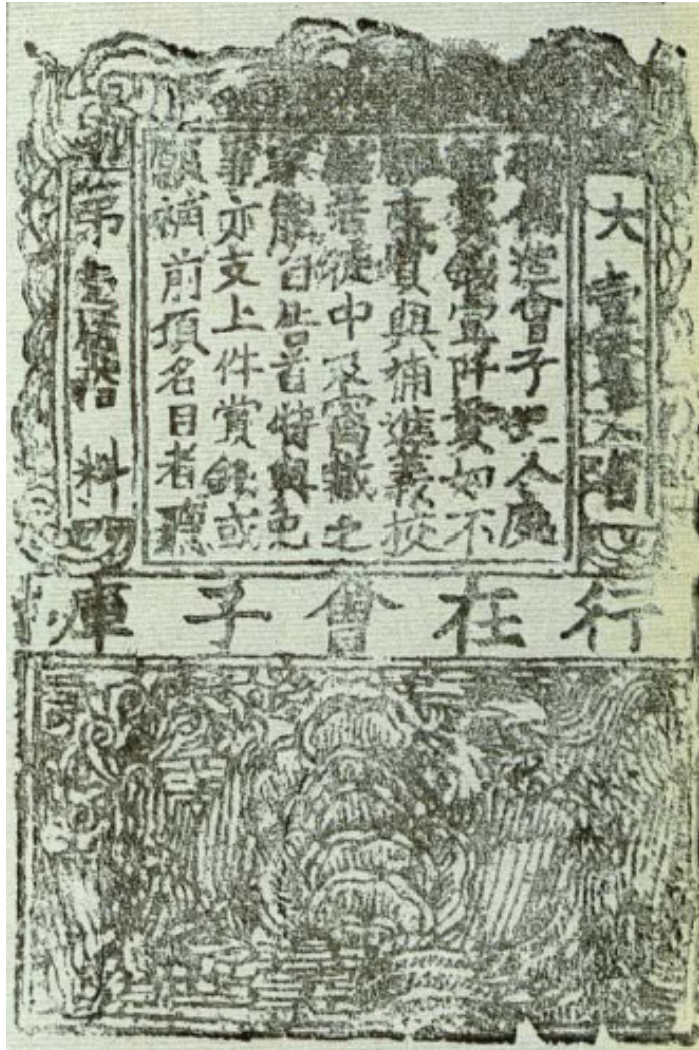 大壹貫文省
敕偽造會子犯人處
賞錢壹阡貫如不
支賞與補進義校
若徒中及窩藏之
家能自告首特與免
亦支上件賞錢或
願補前項名目者聽
第壹佰拾料
行在會子庫